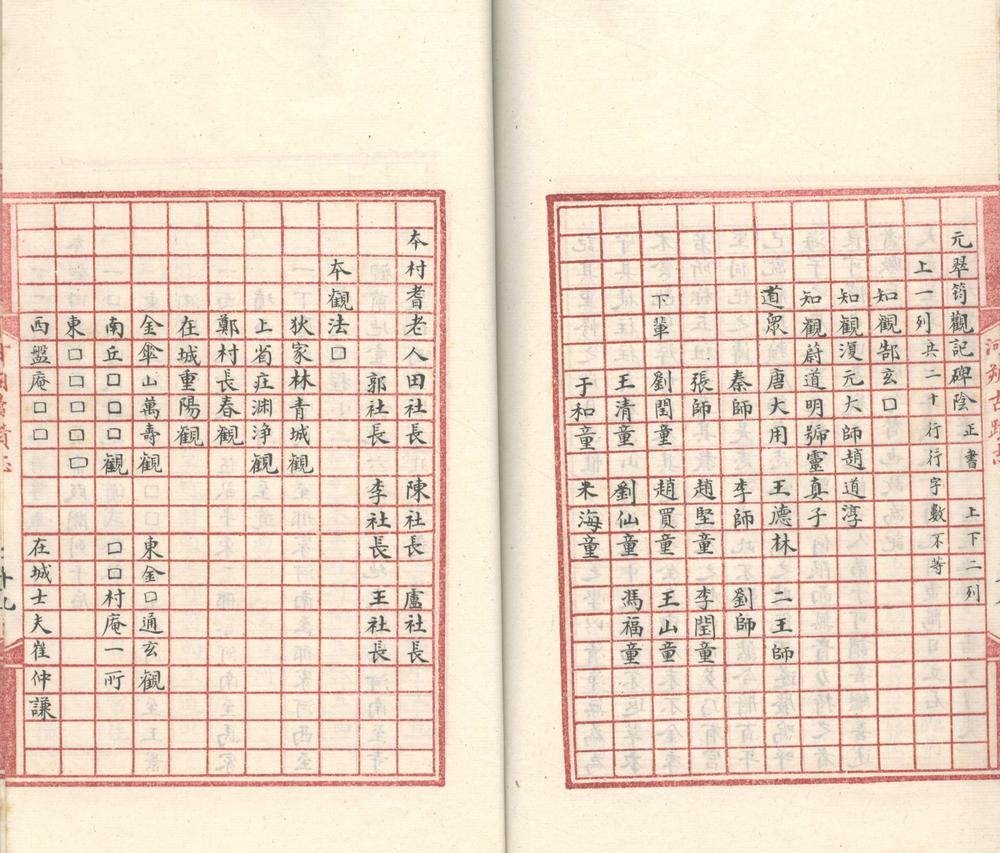 元翠筠觀記碑陰 正書 上下二列
上一列 共二十行行字數不等
知觀郜玄口
知觀渡元大師趙道淳
知觀蔚道明號靈真子
道衆 唐大用 王德林 二王師
秦師 李師 劉師
張師 趙堅童 李閏童
下輩 劉閏童 趙買童 王山童
王清童 劉仙童 馮福童
于和童 米海童
本村耆老人田社長 陳社長 盧社長
郭社長 李社長 王社長
本觀法口
狄家林青城觀
上省庄渊淨觀
鄭村長春觀
在城重陽觀
金傘山萬壽觀 東金口通玄觀
南丘口口口觀 口口村庵一所
東口口口口
西盤庵口口 在城士夫崔仲謙